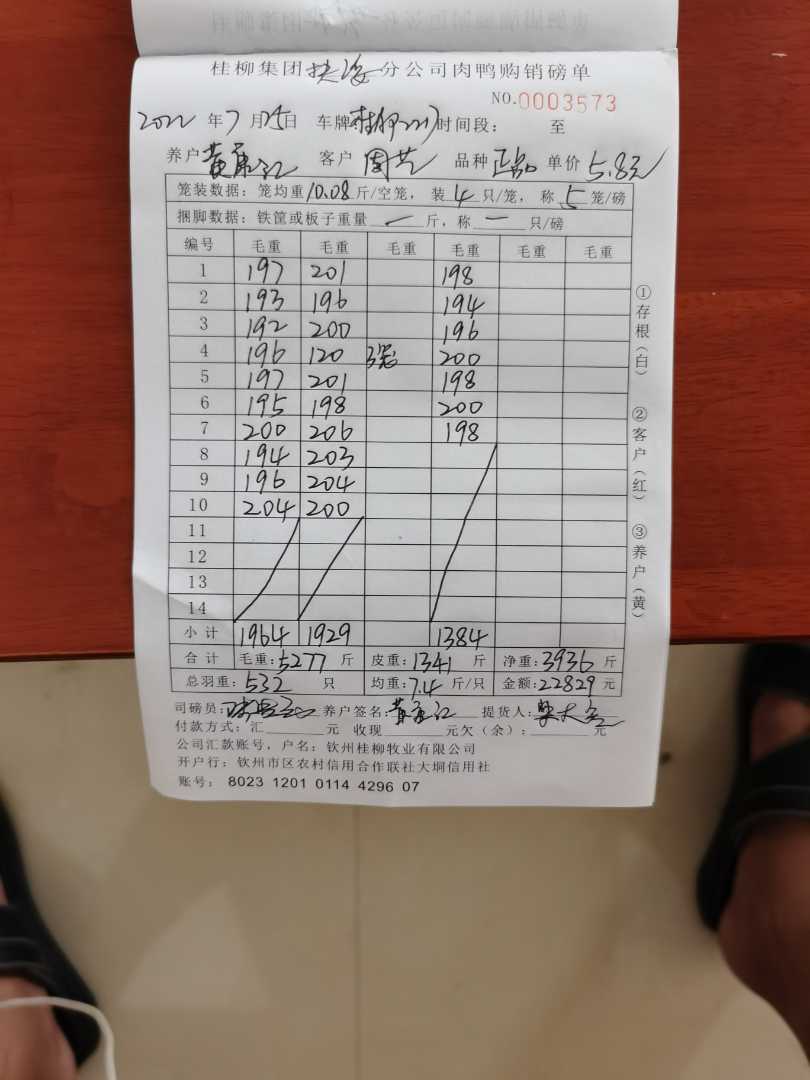 桂柳集团 分公司肉鸭购销磅单
NO.0003573
2022年7月25日 车牌 时间段： 至
养户 黄 客户 周 品种 正品 单价 5.8元
笼装数据：笼均重10.08斤/空笼，装4只/笼，称5笼/磅
捆脚数据：铁筐或板子重量一斤，称一只/磅
编号 毛重 毛重 毛重 毛重 毛重 毛重
1 197 201 198
2 193 196 194
3 192 200 196
4 196 120 3笼 200
5 197 201 198
6 195 198 200
7 200 206 198
8 194 203
9 196 204
10 204 200
11
12
13
14
小计 1964 1929 1384
合计 毛重：5277斤 皮重：1341斤 净重：3936斤
总羽重：532只 均重：7.4斤/只 金额：22829元
司磅员： 养户签名：黄 提货人：
付款方式：汇 元 收现 元欠（余）： 元
公司汇款账号，户名：钦州桂柳牧业有限公司
开户行：钦州市区农村信用合作联社大垌信用社
账号： 8023 1201 0114 4296 07
①存根（白）
②客户（红）
③养户（黄）